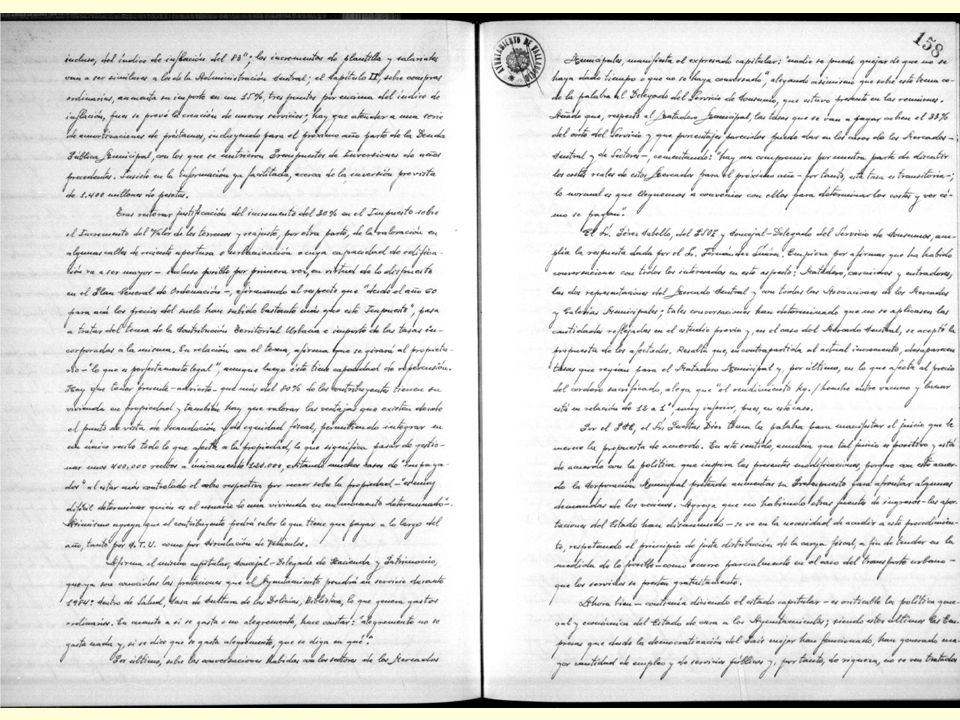 incluso, del índice de inflación del 83"; los incrementos de plantilla y salariales
van a ser similares a los de la Administración Central; el Capítulo II, sobre compras
ordinarias, aumenta su importe en un 15%, tres puntos por encima del índice de
inflación, pues se prevé la creación de nuevos servicios; hay que atender a una serie
de amortizaciones de préstamos, incluyendo para el próximo año parte de la Deuda
Pública Municipal, con los que se nutrieron Presupuestos de Inversiones de años
precedentes. Insiste en la información ya facilitada, acerca de la inversión prevista
de 1.400 millones de pesetas.
Tras razonar justificación del incremento del 20% en el Impuesto sobre
el Incremento del Valor de los terrenos y reajuste, por otra parte, de la valoración en
algunas calles de reciente apertura o urbanización o cuya capacidad de edifica-
ción va a ser mayor - incluso posible por primera vez, en virtud de lo dispuesto
en el Plan General de Ordenación -, afirmando al respecto que "desde el año 80
para acá los precios del suelo han subido bastante más que este Impuesto", pasa
a tratar del tema de la Contribución Territorial Urbana e importe de las tasas in-
corporadas a la misma. En relación con el tema, afirma que se girará al propieta-
rio - "lo que es perfectamente legal", aunque luego éste tiene capacidad de repercusión.
Hay que tener presente - advierte - que más del 80% de los contribuyentes tienen su
vivienda en propiedad y también hay que valorar las ventajas que existen desde
el punto de vista de recaudación y de equidad fiscal, permitiendo integrar en
un único recibo todo lo que afecta a la propiedad, lo que significa pasar de gestio-
nar unos 400.000 recibos a únicamente 125.000, evitando muchos casos de "impaga-
dos" al estar más controlado el cobro respectivo por recaer sobre la propiedad - "es muy
difícil determinar quién es el usuario de una vivienda en un momento determinado" -.
Asimismo agrega que el contribuyente podrá saber lo que tiene que pagar a lo largo del
año, tanto por C.T.U. como por Circulación de Vehículos.
Afirma el mismo capitular, Concejal-Delegado de Hacienda y Patrimonio,
que ya son conocidas las prestaciones que el Ayuntamiento pondrá en servicio durante
1984: Centro de Salud, Casa de Cultura de las Delicias, Biblioteca, lo que genera gastos
ordinarios. En cuanto a si se gasta o no alegremente, hace constar: "alegremente no se
gasta nada y, si se dice que se gasta alegremente, que se diga en qué".
Por último, sobre las conversaciones habidas con los sectores de los Mercados
AYUNTAMIENTO DE VALLADOLID
158
Municipales, manifiesta el expresado capitular: "nadie se puede quejar de que no se
haya dado tiempo o que no se haya conversado", alegando asimismo que sobre este tema ce-
de la palabra al Delegado del Servicio de Consumos, que estuvo presente en las reuniones.
Añade que, respecto al Matadero Municipal, las tasas que se van a pagar cubren el 33%
del coste del Servicio y que porcentajes parecidos puede dar en los casos de los Mercados -
Central y de Sectores -, comentando: "hay un compromiso por nuestra parte de discutir
los costes reales de estos Mercados para el próximo año - por tanto, esta tasa es transitoria -;
lo normal es que lleguemos a convenios con ellos para determinar los costes y ver có-
mo se pagan".
El Sr. Pérez Cabello, del PSOE y Concejal-Delegado del Servicio de Consumos, am-
plía la respuesta dada por el Sr. Fernández. Empieza por afirmar que ha habido
conversaciones con todos los interesados en este aspecto: Matadero, carniceros y entradores,
las dos representaciones del Mercado Central y con todas las Asociaciones de los Mercados
y Galerías Municipales; tales conversaciones han determinado que no se aplicasen las
cantidades reflejadas en el estudio previo y, en el caso del Mercado Central, se aceptó la
propuesta de los afectados. Resalta que, en contrapartida al actual incremento, desaparecen
tasas que regían para el Matadero Municipal y, por último, en lo que afecta al precio
del cordero sacrificado, alega que "el rendimiento kg./hombre entre vacuno y lanar
está en relación de 12 a 1", muy inferior, pues, en este caso.
Por el PCE, el Sr. Puertas Dios toma la palabra para manifestar el juicio que le
merece la propuesta de acuerdo. En este sentido, anuncia que tal juicio es positivo y está
de acuerdo con la política que inspira las presentes modificaciones, porque con este acuer-
do la Corporación Municipal pretende aumentar su Presupuesto para afrontar algunas
demandas de los vecinos. Agrega que no habiendo otras fuentes de ingresos - las apor-
taciones del Estado han disminuido - se ve en la necesidad de acudir a este procedimien-
to, respetando el principio de justa distribución de la carga fiscal, a fin de tender en la
medida de lo posible - como ocurre parcialmente en el caso del transporte urbano -
que los servicios se presten gratuitamente.
Ahora bien - continúa diciendo el citado capitular - es criticable la política gene-
ral y económica del Estado de cara a los Ayuntamientos; siendo estos últimos las Em-
presas que desde la democratización del País mejor han funcionado, han generado ma-
yor cantidad de empleo y de servicios públicos y, por tanto, de riqueza, no se ven tratados